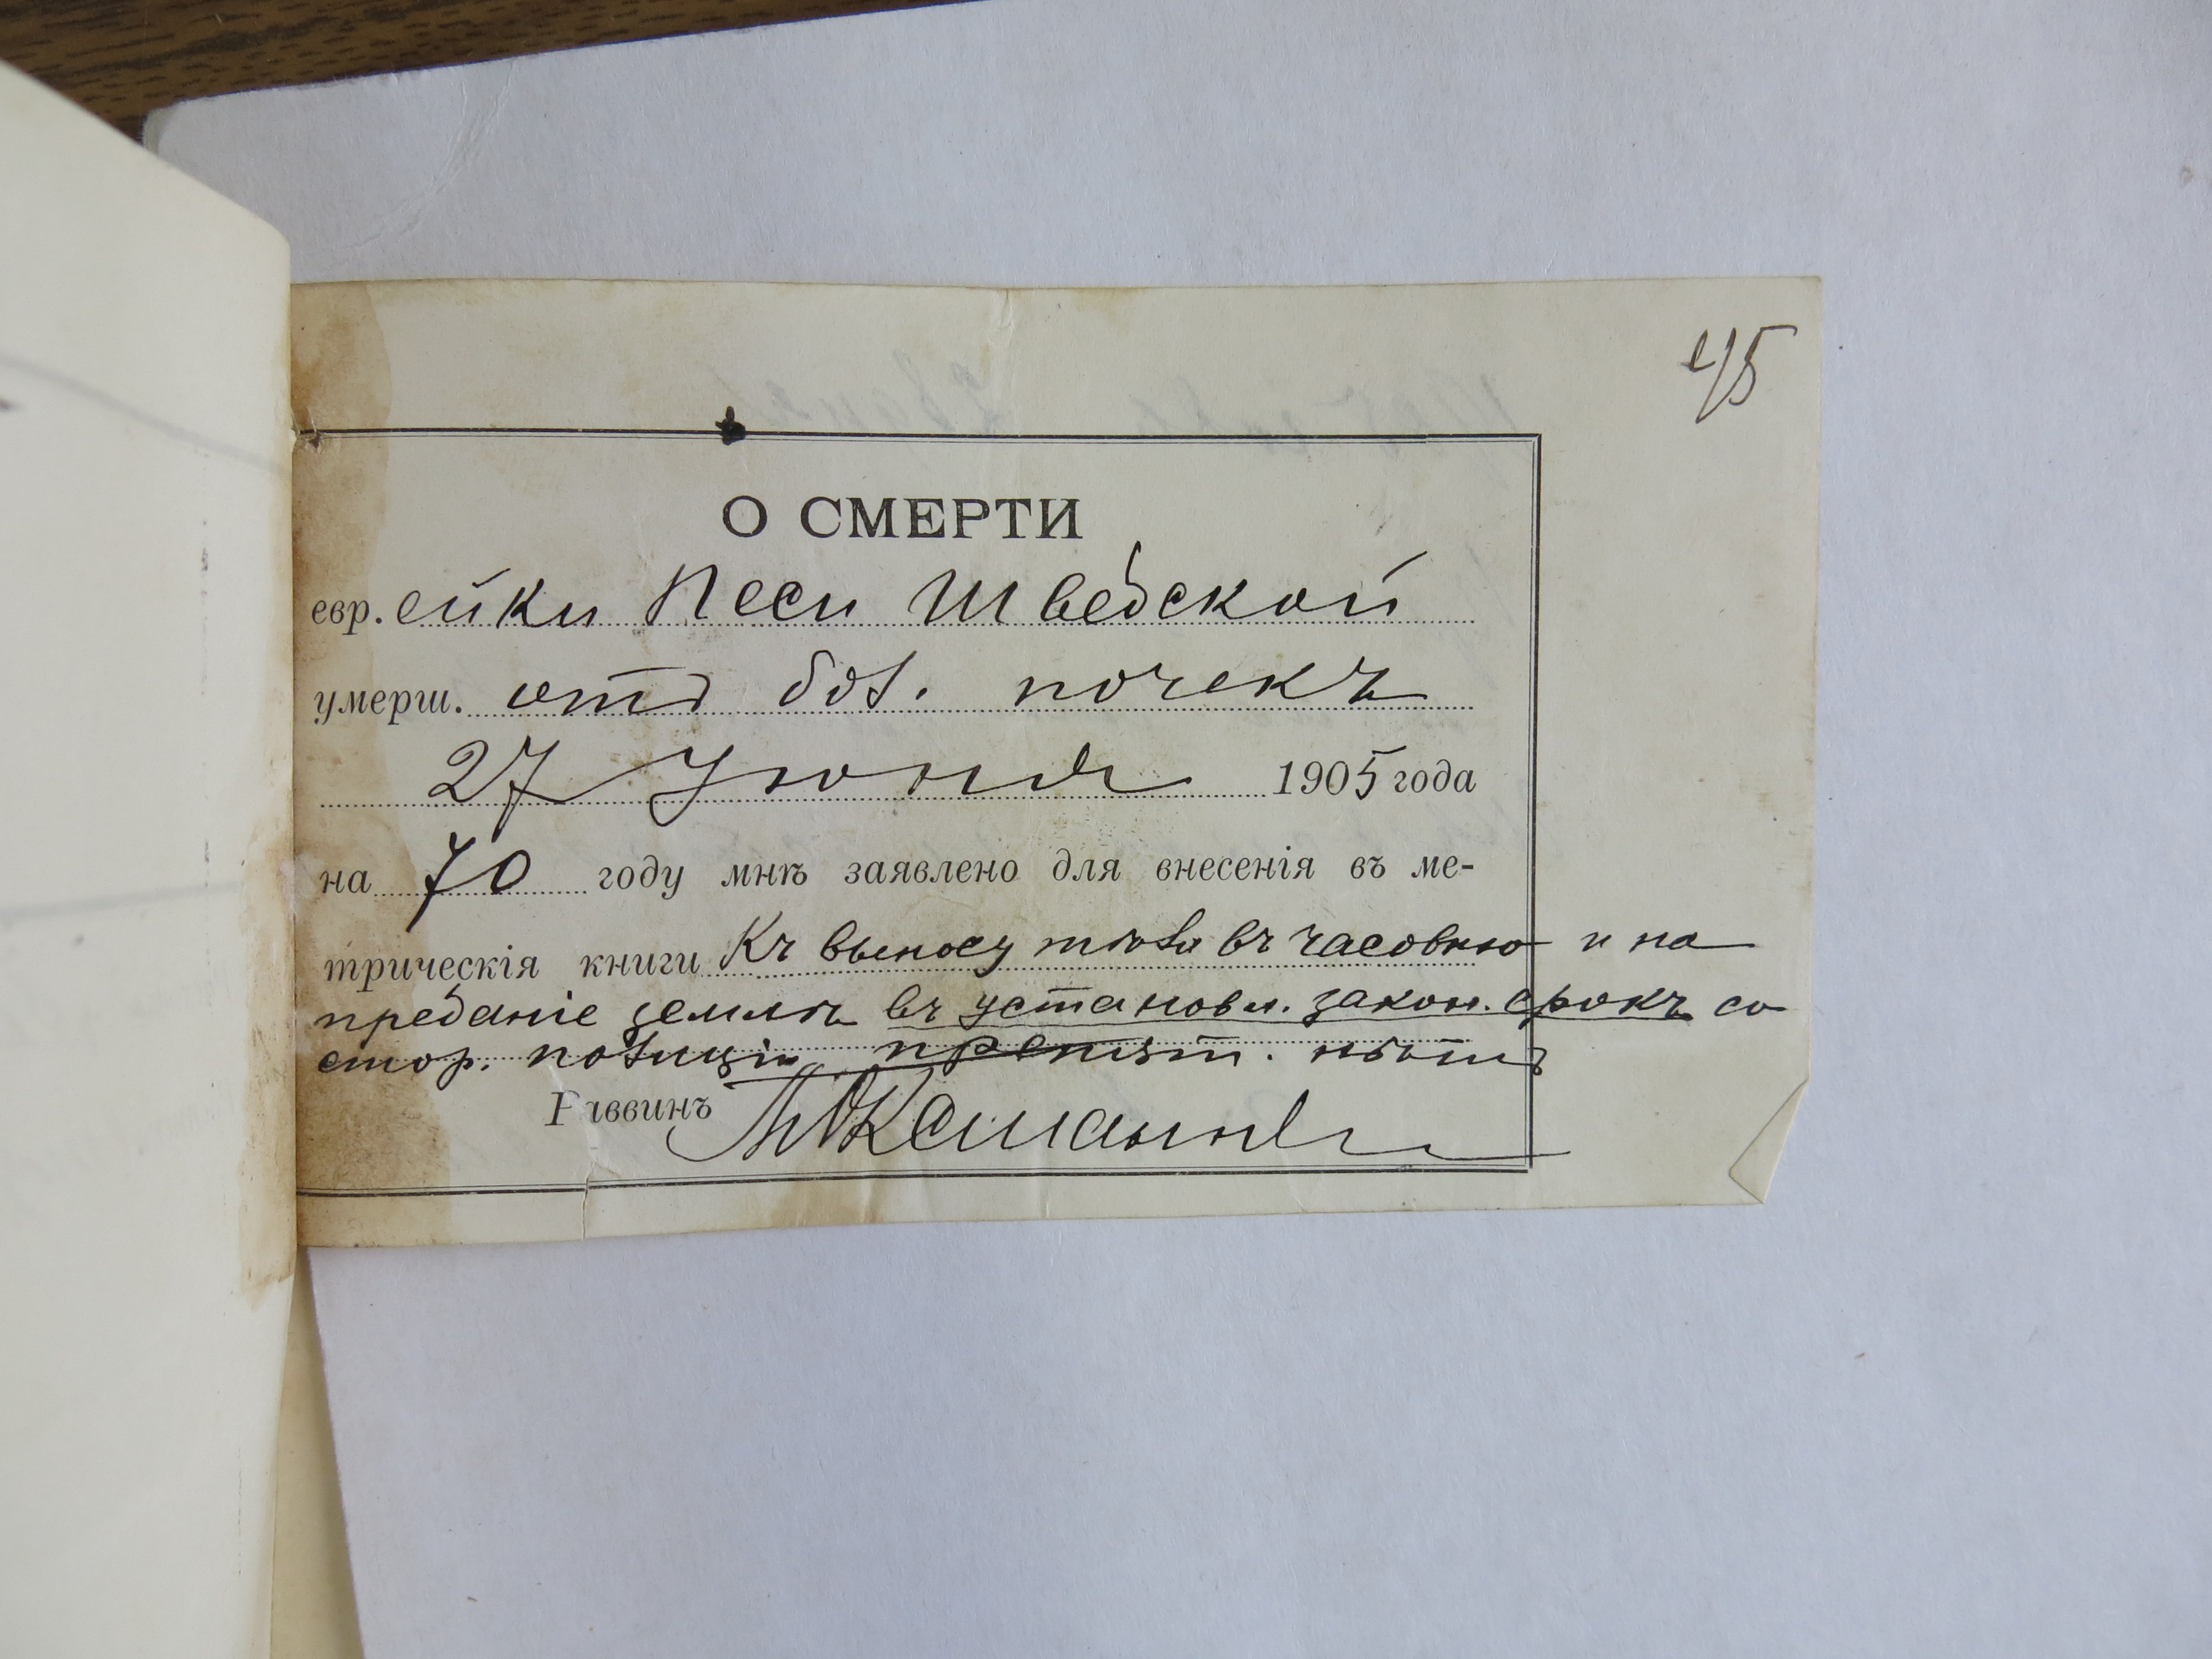 45
О СМЕРТИ
евр.ейки Песи Шведской
умерш. отъ бол. почекъ
27 Июня 1905 года
на 70 году мнѣ заявлено для внесенія въ ме-
трическія книги Къ выносу тѣла въ часовню и на
преданіе землѣ въ установл. закон. срокъ со
стор. полиціи препят. нѣтъ
Раввинъ